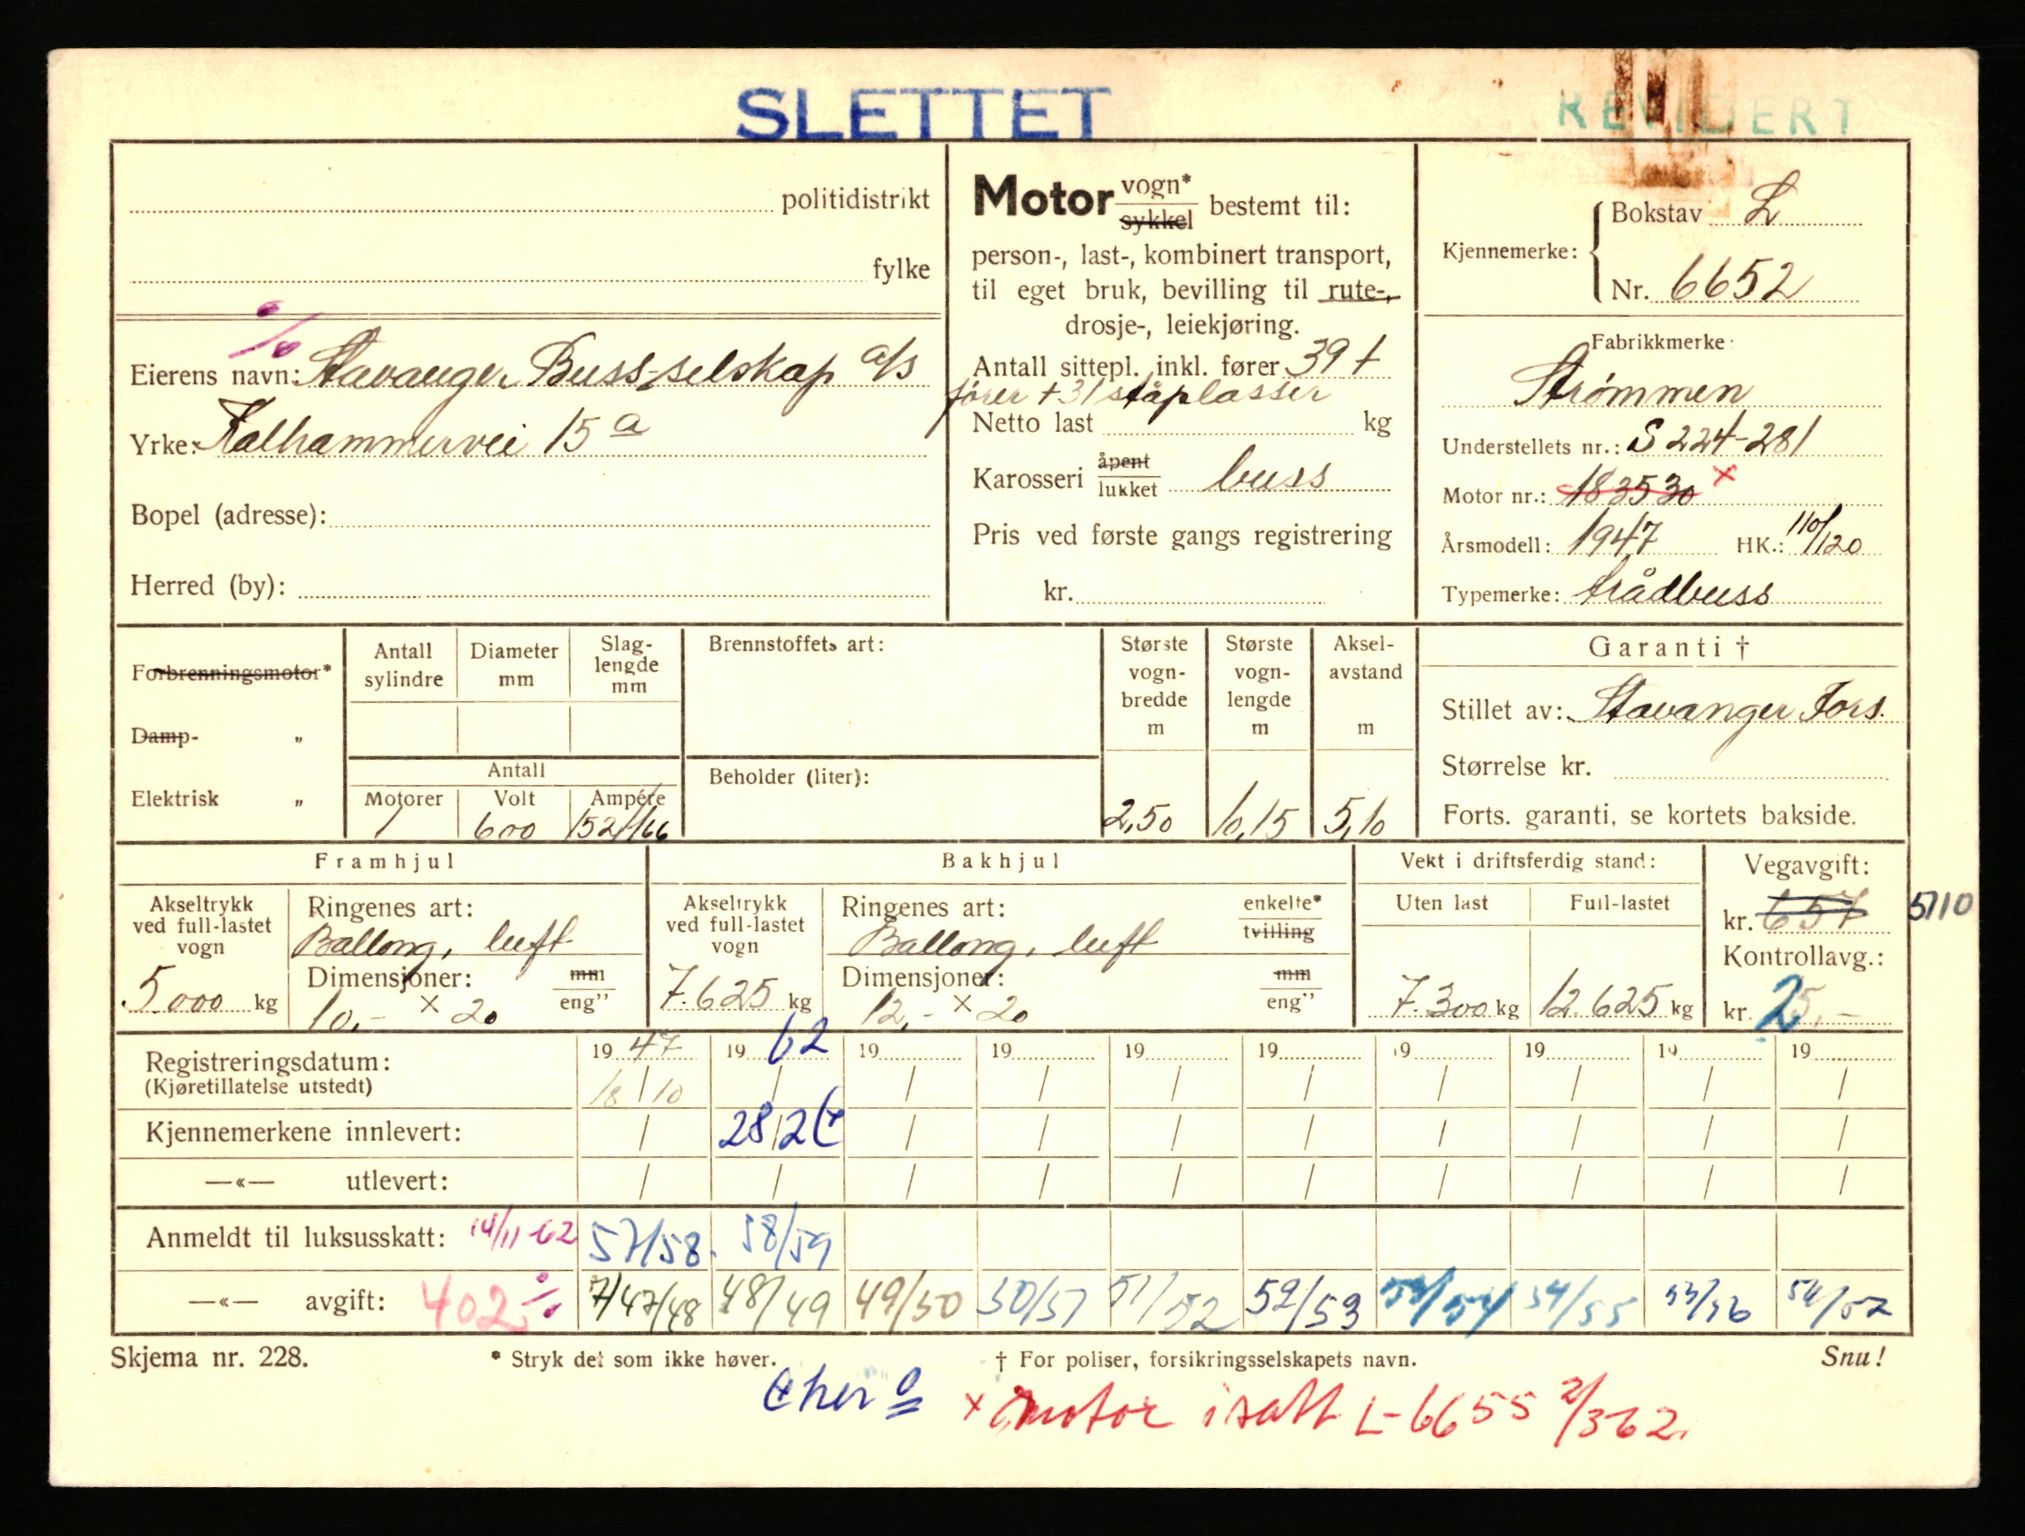 SLETTET
REVIDERT
politidistrikt
fylke
Eierens navn: Stavanger Buss-selskap a/s
Yrke: Kalhammervei 15 a
Bopel (adresse):
Herred (by):
Motor vogn* sykkel bestemt til:
person-, last-, kombinert transport,
til eget bruk, bevilling til rute-,
drosje-, leiekjøring.
Antall sittepl. inkl. fører 39 +
fører + 31 ståplasser
Netto last kg
Karosseri åpent lukket buss
Pris ved første gangs registrering
kr.
Kjennemerke: Bokstav L
Nr. 6652
Fabrikkmerke:
Strømmen
Understellets nr.: S 224-281
Motor nr.: 183530 x
Årsmodell: 1947 HK.: 110/120
Typemerke: trådbuss
Forbrenningsmotor*
Damp- „
Elektrisk „
Antall sylindre
Diameter mm
Slag-lengde mm
Antall
Motorer Volt Ampére
1 600 152/166
Brennstoffets art:
Beholder (liter):
Største vogn-bredde m
2,50
Største vogn-lengde m
10,15
Aksel-avstand m
5,10
Garanti †
Stillet av: Stavanger Fors.
Størrelse kr.
Forts. garanti, se kortets bakside.
Framhjul
Akseltrykk ved full-lastet vogn
5000 kg
Ringenes art:
Ballong, luft
Dimensjoner: mm eng"
10,- x 20
Bakhjul
Akseltrykk ved full-lastet vogn
7.625 kg
Ringenes art: enkelte* tvilling
Ballong, luft
Dimensjoner: mm eng"
12,- x 20
Vekt i driftsferdig stand:
Uten last Full-lastet
7.300 kg 12.625 kg
Vegavgift:
kr. 657 5110
Kontrollavg.:
kr. 25,-
Registreringsdatum: 19 47 19 62 19 19 19 19 19 19 19 19
(Kjøretillatelse utstedt) 18/10 / / / / / / / / /
Kjennemerkene innlevert: / 28/2 / / / / / / / /
—«— utlevert: / / / / / / / / / /
Anmeldt til luksusskatt: 14/11-62 57/58. 58/59
—«— avgift: 402 7/47/48 48/49 49/50 50/51 51/52 52/53 53/54 54/55 55/56 56/57
Skjema nr. 228. * Stryk det som ikke høver. † For poliser, forsikringsselskapets navn. Snu!
x motor i satt L-6655 2/3 62.